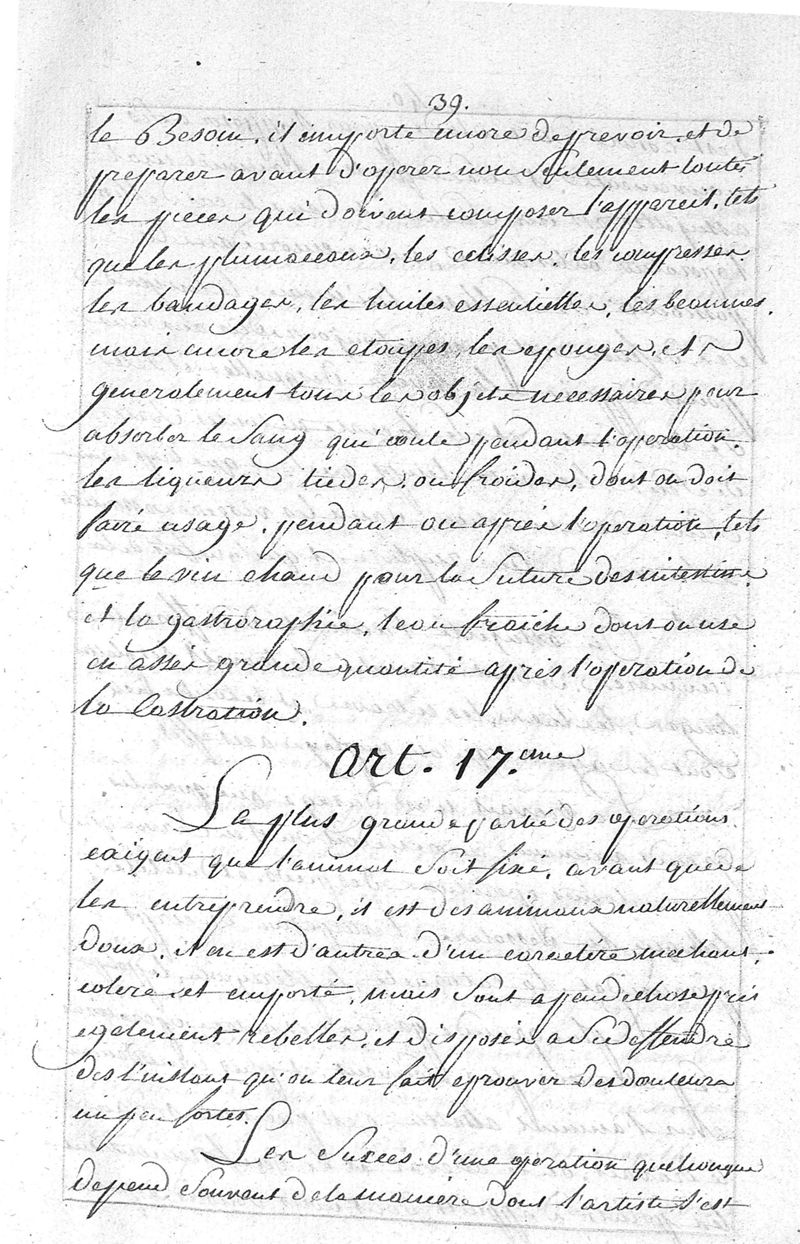 39.
le Besoin, il importe encore de prevoir, et de
preparer avant d'operer non seulement toutes
les pieces qui doivent composer l'appareil, tels
que les plumaceaux, les eclisses, les compresses
les bandages, les huiles essentielles, les beaumes,
mais encore les etoupes, les eponges, et
generalement tous les objets necessaires pour
absorber le sang qui coule pendant l'operation
les liqueurs tiedes, ou froides, dont on doit
faire usage, pendant ou après l'operation, tels
que le vin chaud pour la suture des intestins
et la gastroraphie, l'eau fraiche dont on use
en assés grande quantité après l'operation de
la Castration.
Art. 17.eme
La plus grande partie des operations
exigent que l'animal soit fixé, avant que de
les entreprendre, il est des animaux naturellement
doux, il en est d'autres d'un caractére mechant,
coleré et emporté, mais sont a peu de chose prés
egalement rebelles, et disposés a se deffendre
des l'instant qu'on leur fait eprouver des douleurs
un peu fortes.
Les succés d'une operation quelconque
depend souvent de la manière dont l'artiste s'est